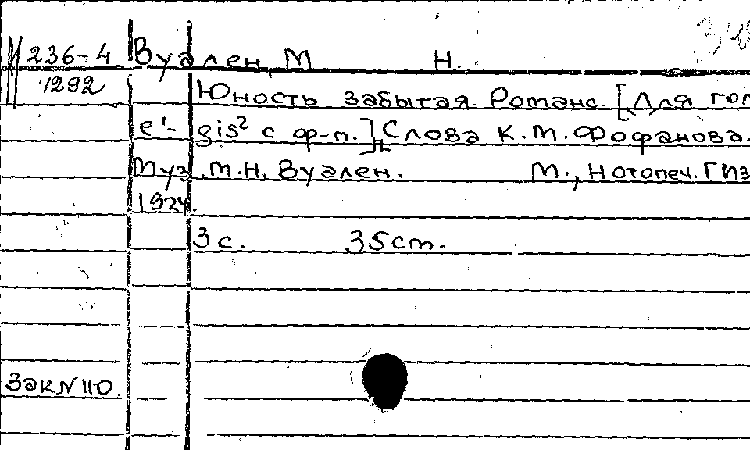 236-4 Вуален, М Н.
1292 Юность забытая. Романс. [Для гол
e¹- gis² с ф-п.] Слова К. М. Фофанова.
Муз. М. Н. Вуален. М., Нотопеч. ГИЗ
1924.
3 с. 35 cm.
Зак N 110.